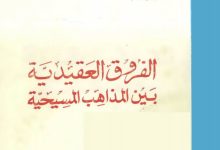 الفروق العقيدية
بين المذاهب المسيحية